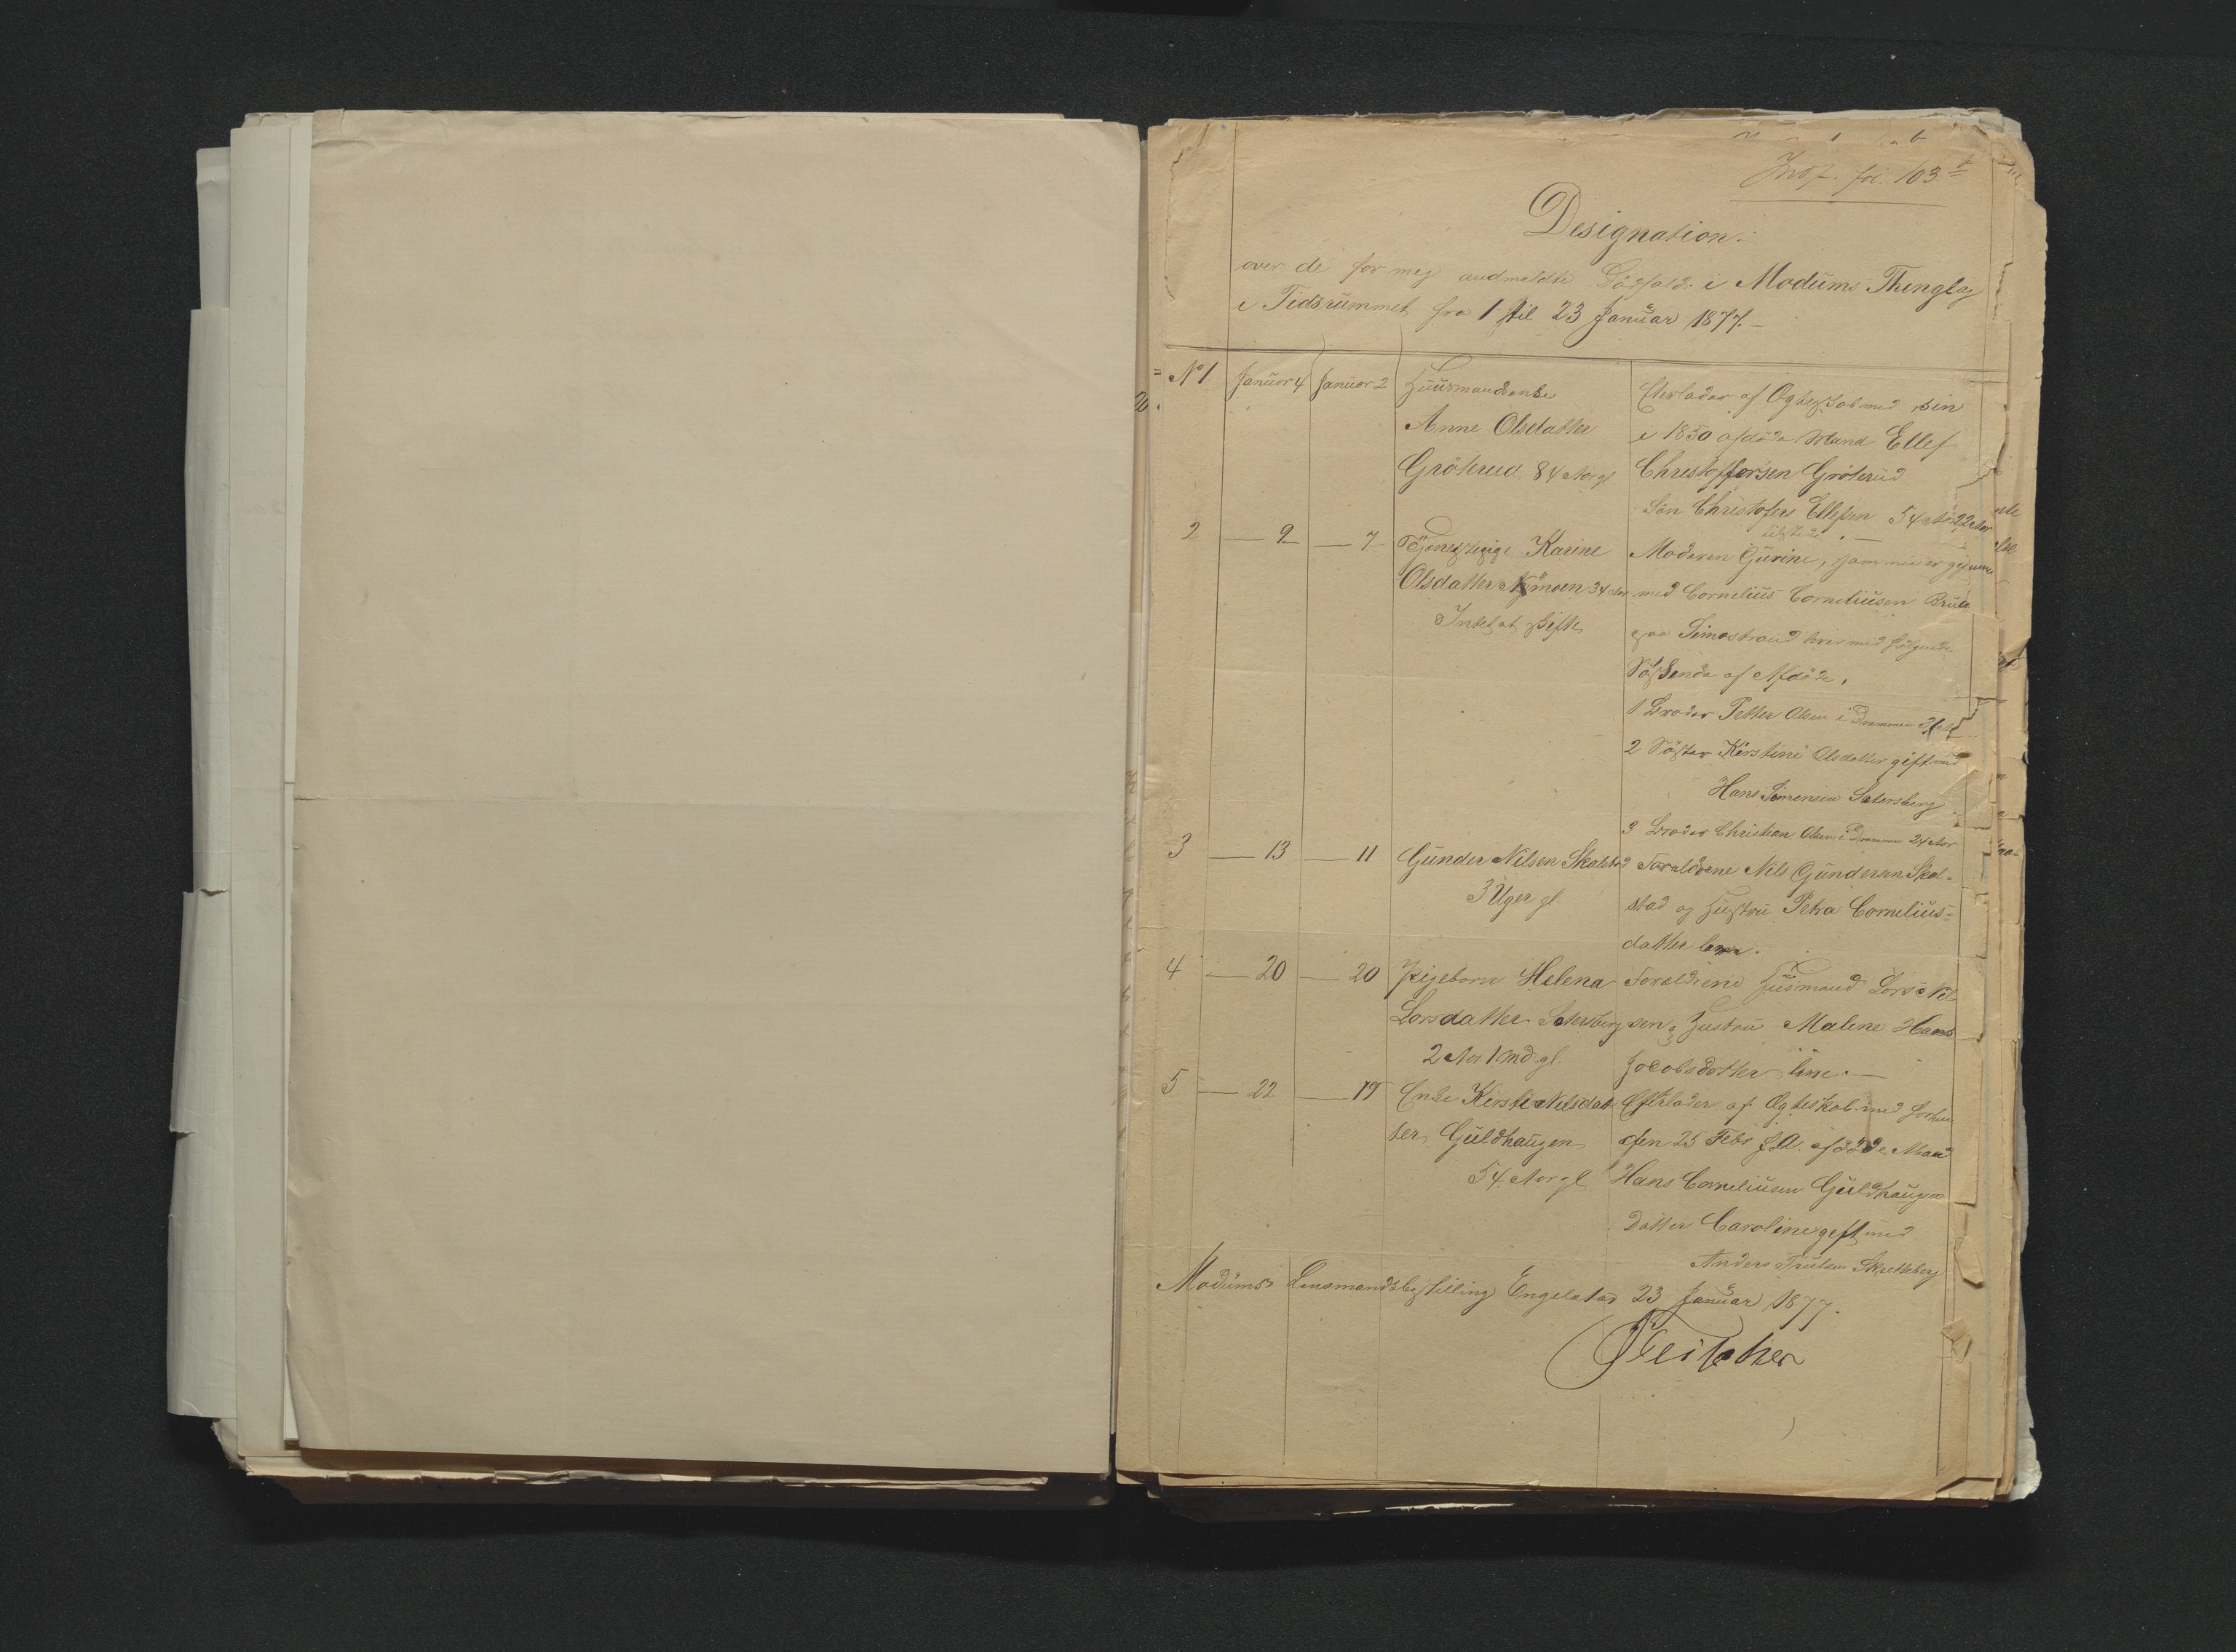 fol. 103 b
Designation
over de for mig anmeldte Dödsfald i Modums Thinglag
i Tidsrummet fra 1 til 23 Januar 1877.
No 1 Januar 4 Januar 2 Huusmandsenke Efterlader af Ægteskab med sin
Anne Olsdatter i 1850 afdöde Mand Ellef
Gröterud 84 Aar gl. Christoffersen Gröterud
Sön Christofer Ellefsen 54 Aar
2 — 9 — 7 Tjenestepige Karine Moderen Gurine, som nu er gift
Olsdatter Nymoen 34 Aar med Cornelius Corneliusen
Intet at skifte paa Simostrand lever med fölgende
Södskende af Afdöde,
1 Broder Petter Olsen i Drammen
2 Söster Kirstine Olsdatter gift med
Hans Simensen Sætersberg
3 Broder Christian Olsen i Drammen 24 Aar
3 — 13 — 11 Gunder Nilsen Skalstad Forældrene Nils Gundersen Skal-
3 Uger gl stad og Hustru Petra Cornelius-
datter leve.
4 — 20 — 20 Pigebarn Helena Forældrene Husmand Lars Nil-
Larsdatter Sætersberg sen & Hustru Malene
2 Aar 1 Md gl. Jacobsdatter leve. —
5 — 22 — 19 Enke Kirsti Nilsdat- Efterlader af Ægteskab med
ter Guldhaugen den 25 Febr f. A. afdöde Mand
54 Aar gl Hans Corneliusen Guldhaugen
Datter Caroline gift med
Anders Truelsen Skretteberg
Modums Lensmandsbestilling Engelstad 23 Januar 1877.
Fleischer